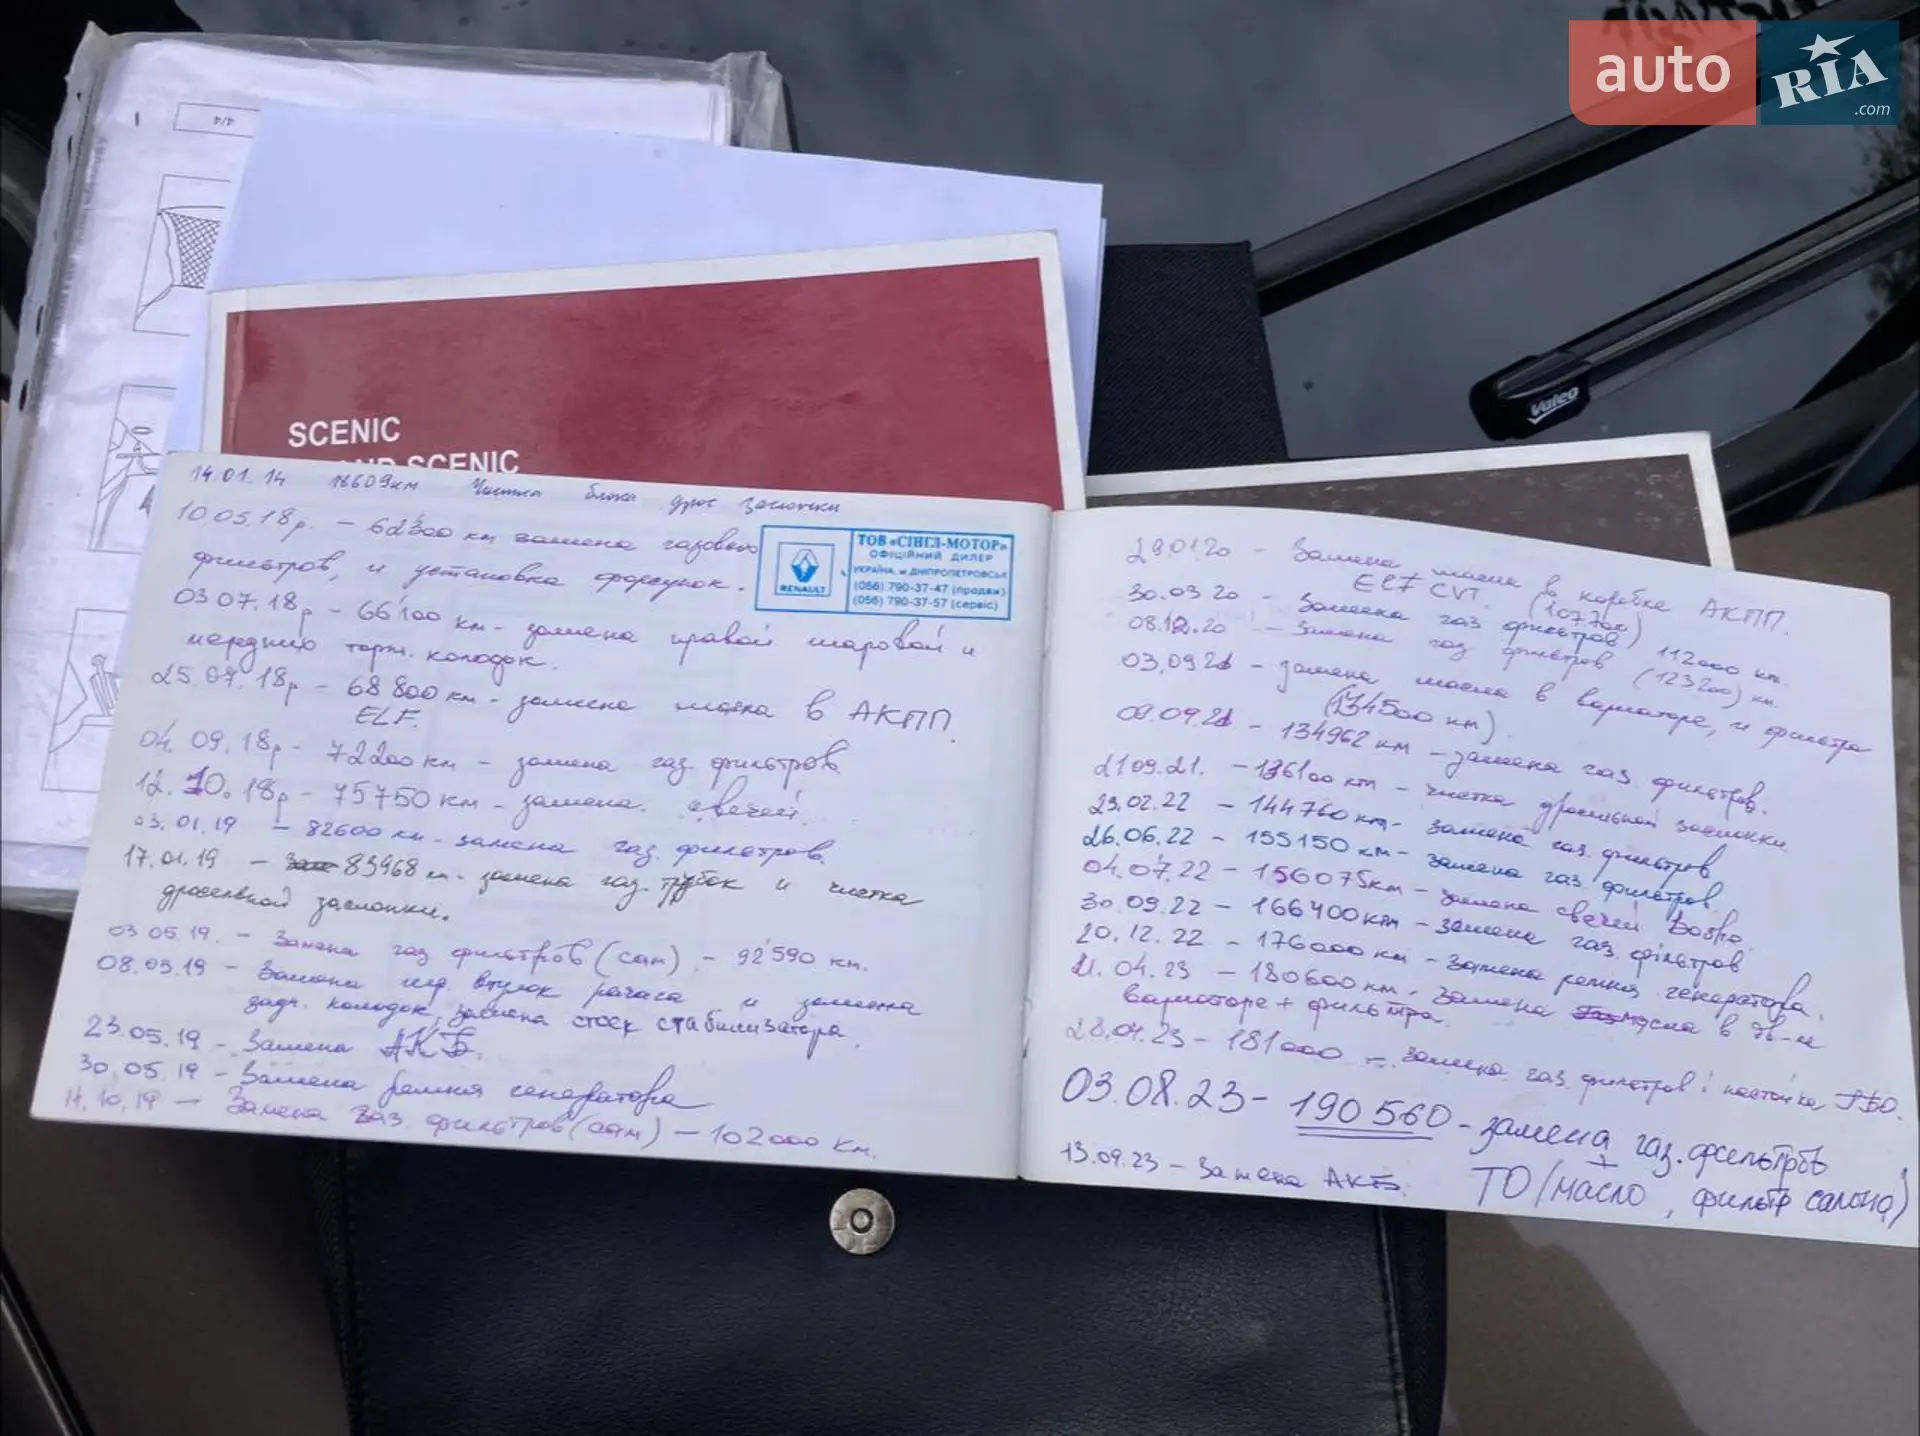 auto RIA .com
Valeo
4/4
SCENIC
AND SCENIC
14.01.14 18609км Чистка блока дрос заслонки
10.05.18р. – 62300 км замена газового
фильтров, и установка форсунок.
RENAULT
ТОВ «СІНГЛ-МОТОР»
ОФІЦІЙНИЙ ДИЛЕР
УКРАЇНА, м.ДНІПРОПЕТРОВСЬК
(056) 790-37-47 (продаж)
(056) 790-37-57 (сервіс)
03.07.18р – 66100 км – замена правой шаровой и
переднию торм. колодок.
25.07.18р – 68800 км – замена масла в АКПП.
ELF.
04.09.18р – 72200 км – замена газ. фильтров.
12.10.18р – 75750 км – замена свечей.
03.01.19 – 82600 км – замена газ. фильтров.
17.01.19 – 83968 км – замена газ. трубок и чистка
дросельной заслонки.
03.05.19. – Замена газ фильтров (сам) – 92'590 км.
08.03.19 – Замена втулок и замена
задн. колодок, замена стоек стабилизатора.
23.05.19 – Замена АКБ.
30.05.19 – Замена ремня генератора
14.10.19 – Замена газ. фильтров (сам) – 102000 км.
29.01.20 – Замена масла в коробке АКПП.
ELF CVT. (107.700)
30.03.20 – Замена газ фильтров 112000 км.
08.12.20 – Замена газ фильтров (123200) км.
03.09.21 – замена масла в вариаторе, и фильтра
(134500 км).
09.09.21 – 134962 км – замена газ фильтров.
21.09.21. – 136100 км – чистка дросельной заслонки.
23.02.22 – 144760 км – замена газ. фильтров
26.06.22 – 155150 км – замена газ. фильтров.
04.07.22 – 156075км – замена свечей
30.09.22 – 166400км – замена газ. фільтров
20.12.22 – 176000 км – замена ремня генератора.
21.04.23 – 180600 км. замена масла в дв-ле
вариаторе + фильтра.
28.04.23 – 181000 – замена газ. фильтров і настойка ГБО.
03.08.23 – 190560 – замена газ. фильтров
+
13.09.23 – Замена АКБ.
ТО (масло, фильтр салона)